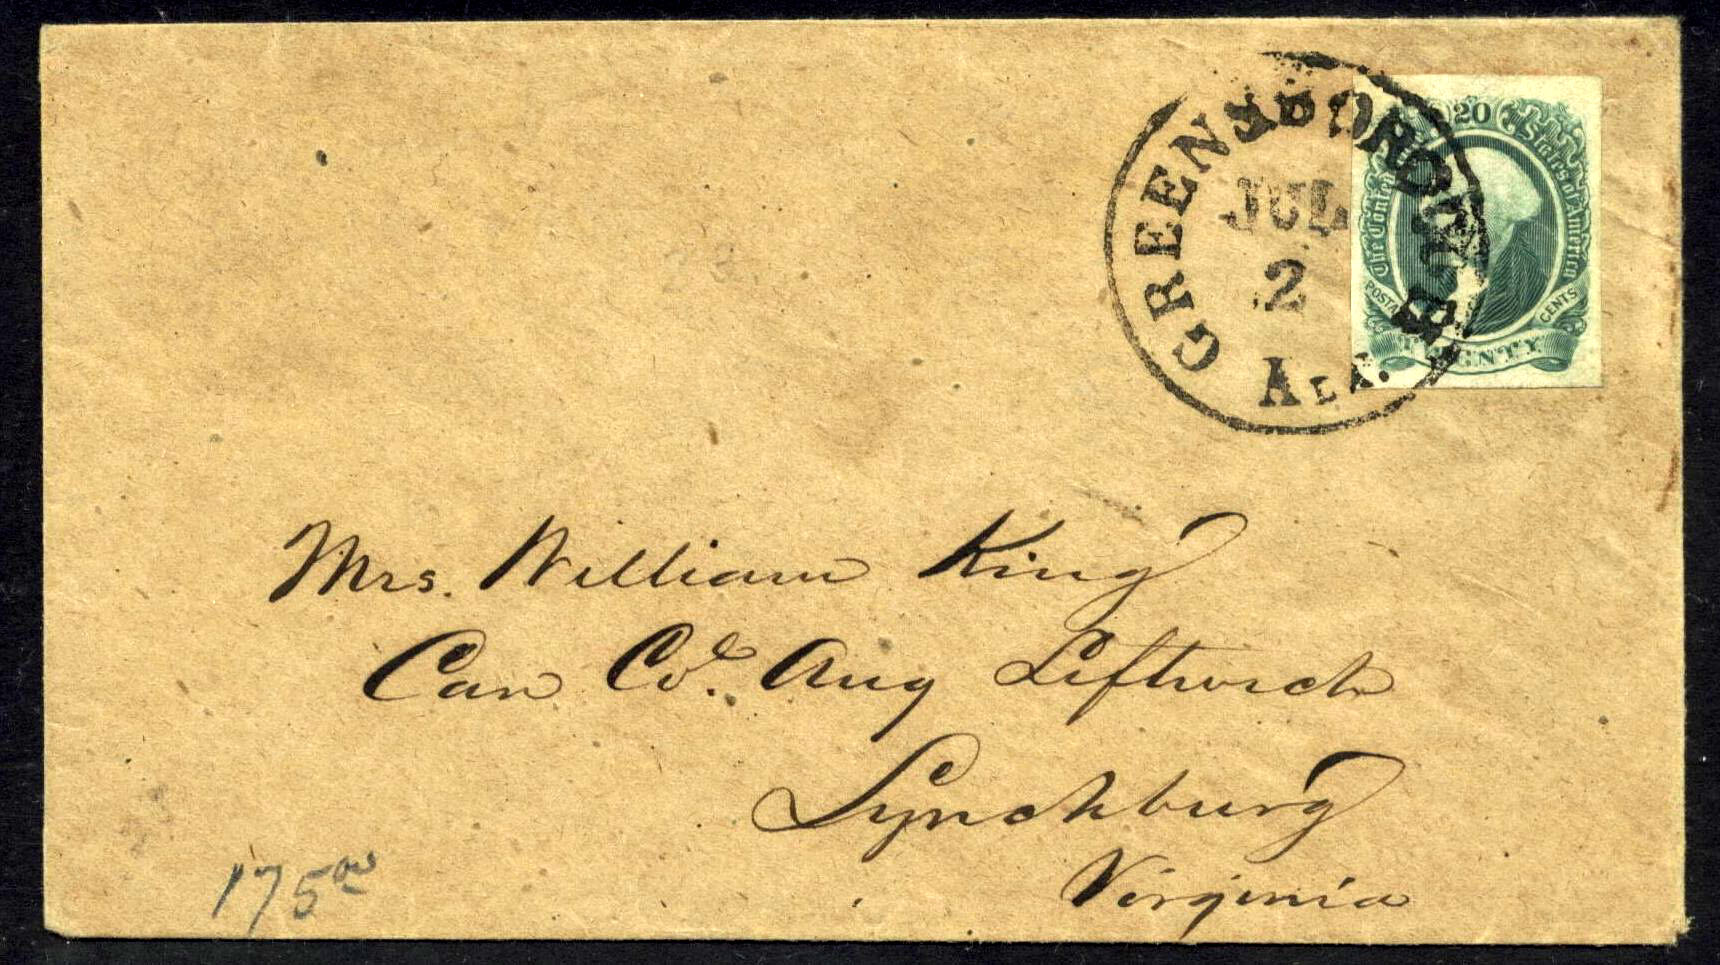 GREENSBOROUGH
JUL
2
ALA.
20
The Confed States of America
POSTA CENTS
TWENTY
Mrs. William King
Care Col. Aug Leftwich
Lynchburg
Virginia
175 00